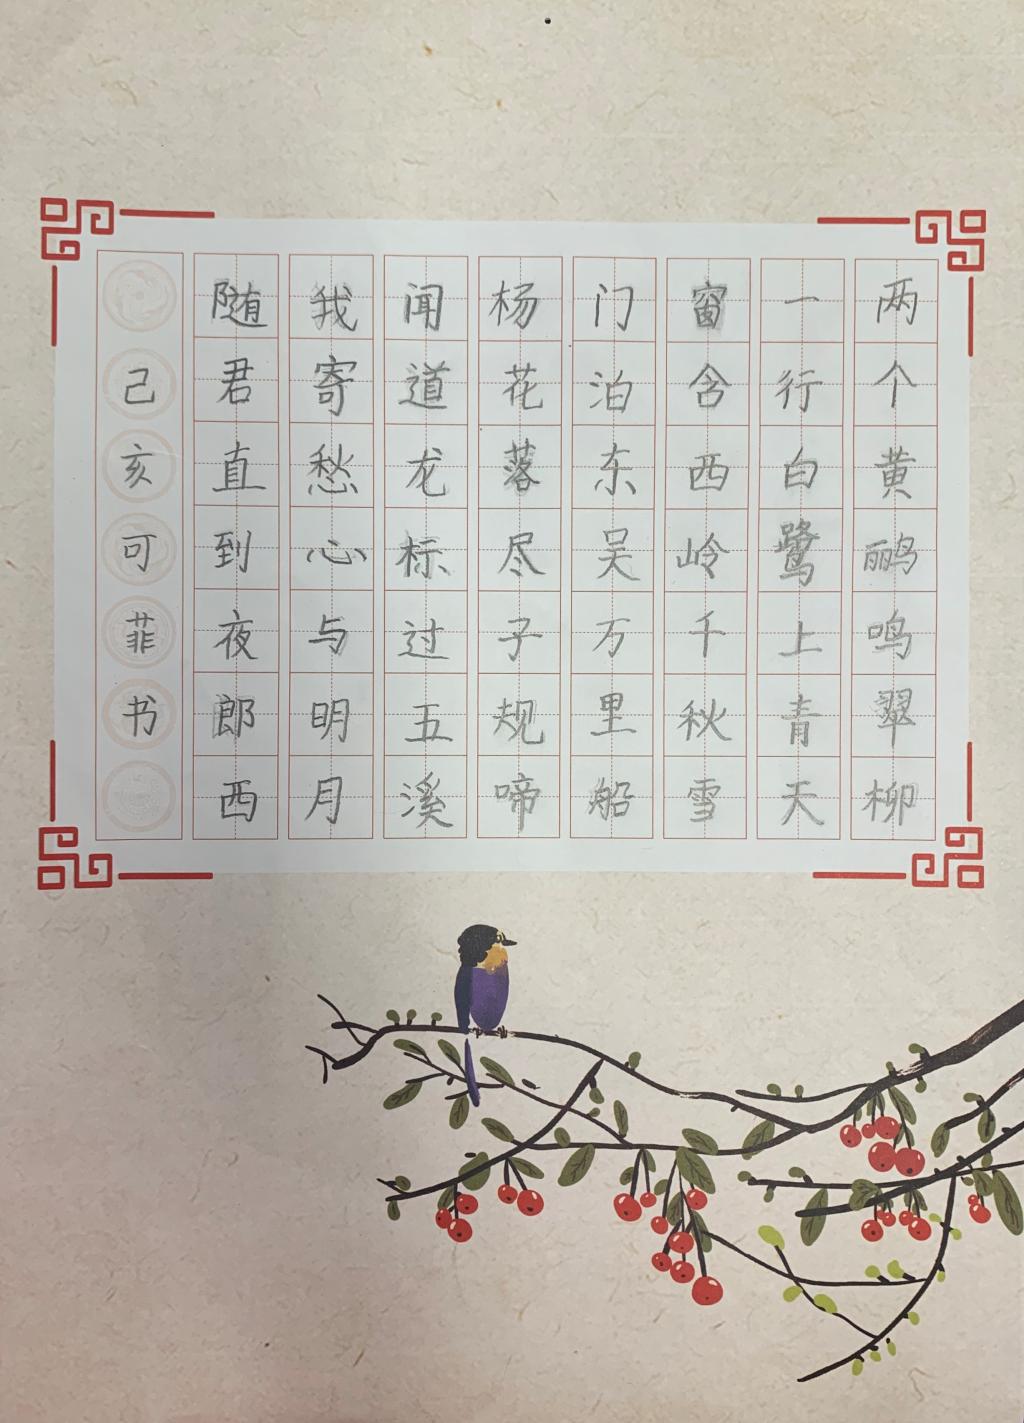 两个黄鹂鸣翠柳
一行白鹭上青天
窗含西岭千秋雪
门泊东吴万里船
杨花落尽子规啼
闻道龙标过五溪
我寄愁心与明月
随君直到夜郎西
己亥可菲书